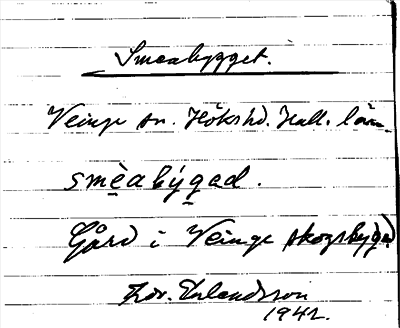 Smeabygget.
Veinge sn. Höks hd. Hall. län
smèabýgad.
Gård i Veinge skogsbygd
Erlandsson
1942.